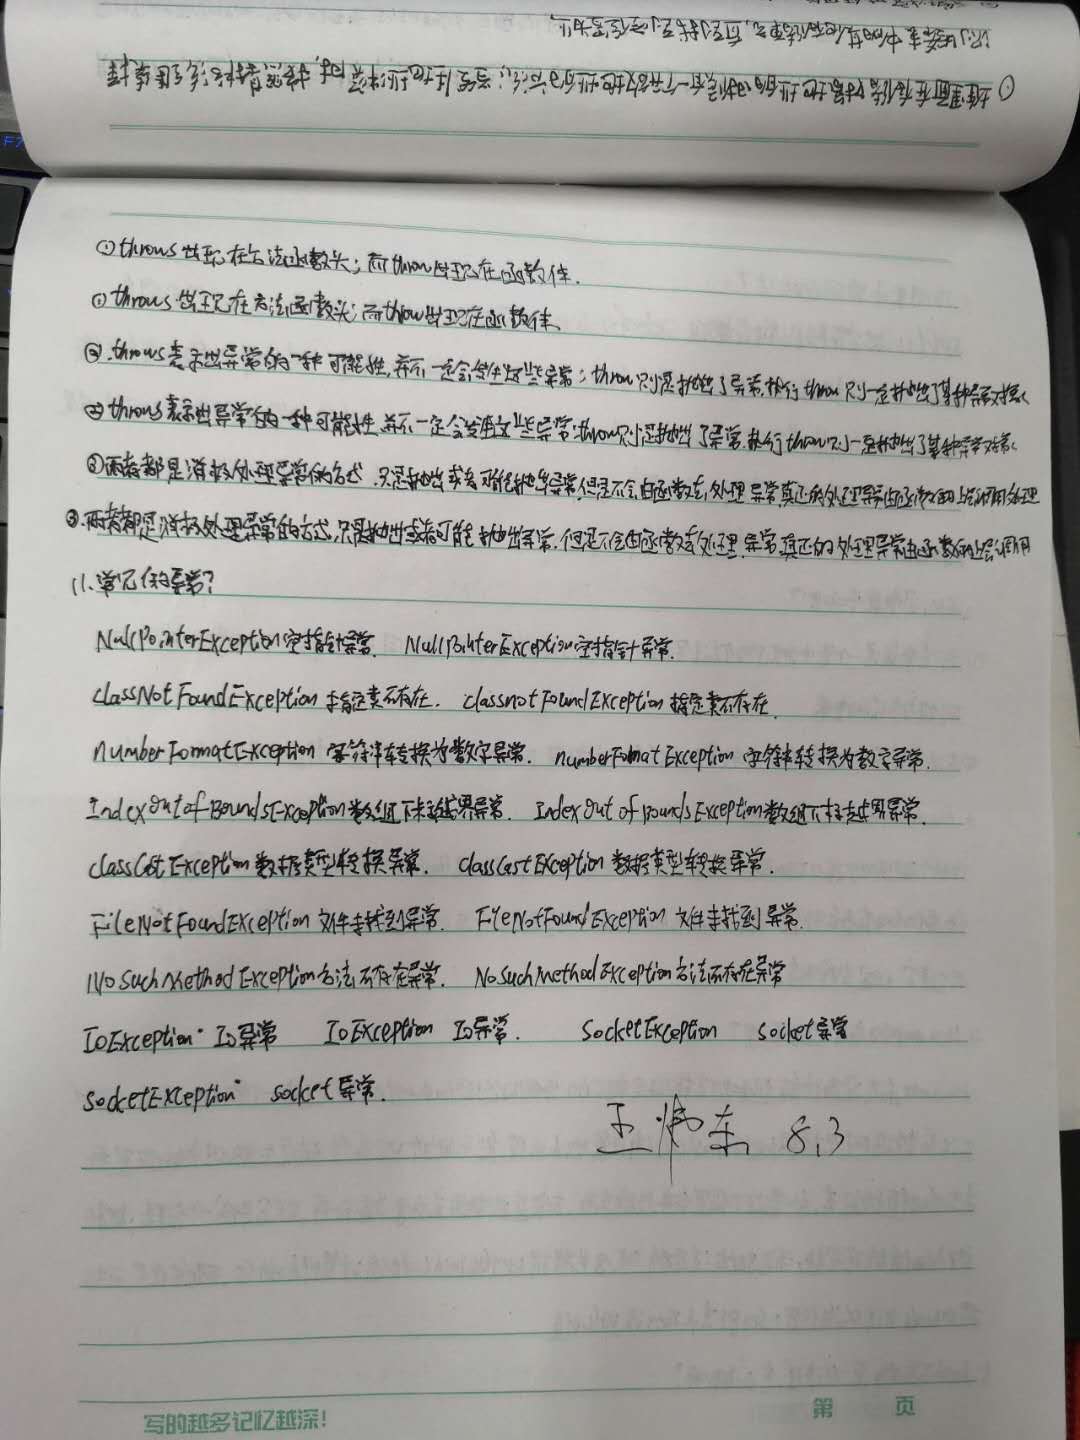 ①throws出现在方法函数头;而throw出现在函数体.
①throws出现在方法函数头;而throw出现在函数体.
②.throws表示出异常的一种可能性,并不一定会发生这些异常;throw则是抛出了异常,执行throw则一定抛出了某种异常对象
②throws表示出异常的一种可能性,并不一定会发生这些异常;throw则是抛出了异常,执行throw则一定抛出了某种异常对象
③两者都是消极处理异常的方式.只是抛出或者可能抛出异常但是不会由函数去处理异常真正的处理异常由函数的上层调用处理
③.两者都是消极处理异常的方式,只是抛出或者可能抛出异常,但是不会由函数去处理异常,真正的处理异常由函数的上层调用
11.常见的异常?
NullPointerException空指针异常. NullPointerException空指针异常.
classNotFoundException 指定类不存在. classnotFoundException 指定类不存在.
numberFormatException 字符串转换为数字异常. numberFormatException 字符串转换为数字异常.
IndexOutofBoundsException数组下标越界异常. IndexOutofBoundsException数组下标越界异常.
classCastException 数据类型转换异常. classCastException 数据类型转换异常.
FileNotFoundException 文件未找到异常. FileNotFoundException 文件未找到异常.
NoSuchMethodException方法不存在异常. NoSuchMethodException方法不存在异常
IoException Io异常 IoException Io异常. SocketException socket异常
SocketException socket异常.
8.3
写的越多记忆越深!
第 页